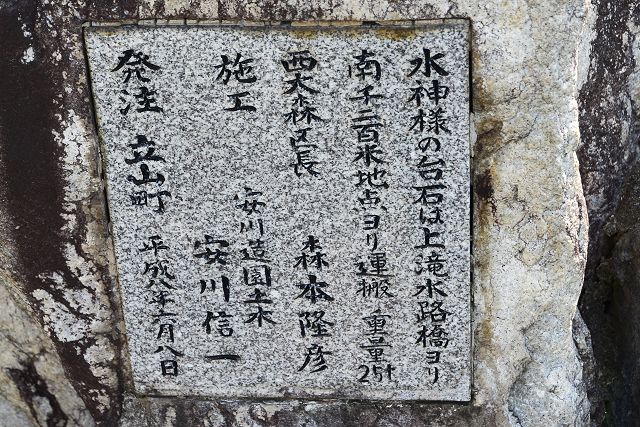 水神様の台石は上滝水路橋ヨリ
南千二百米地点ヨリ運搬 重量25t
西大森区長 森本隆彦
施工 安川造園土木 安川信一
発注 立山町 平成八年二月八日